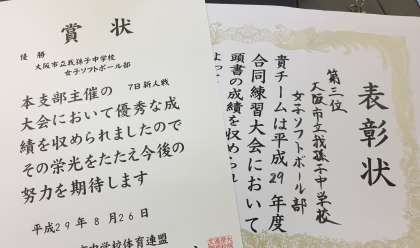 賞状
優勝
大阪市立我孫子中学校
女子ソフトボール部
本支部主催の 7日新人戦
大会において優秀な成
績を収められましたので
その栄光をたたえ今後の
努力を期待します
平成29年8月26日
中学校体育連盟
表彰状
第三位
大阪市立我孫子中学校
女子ソフトボール部
貴チームは平成29年度
合同練習大会において
頭書の成績を収められ